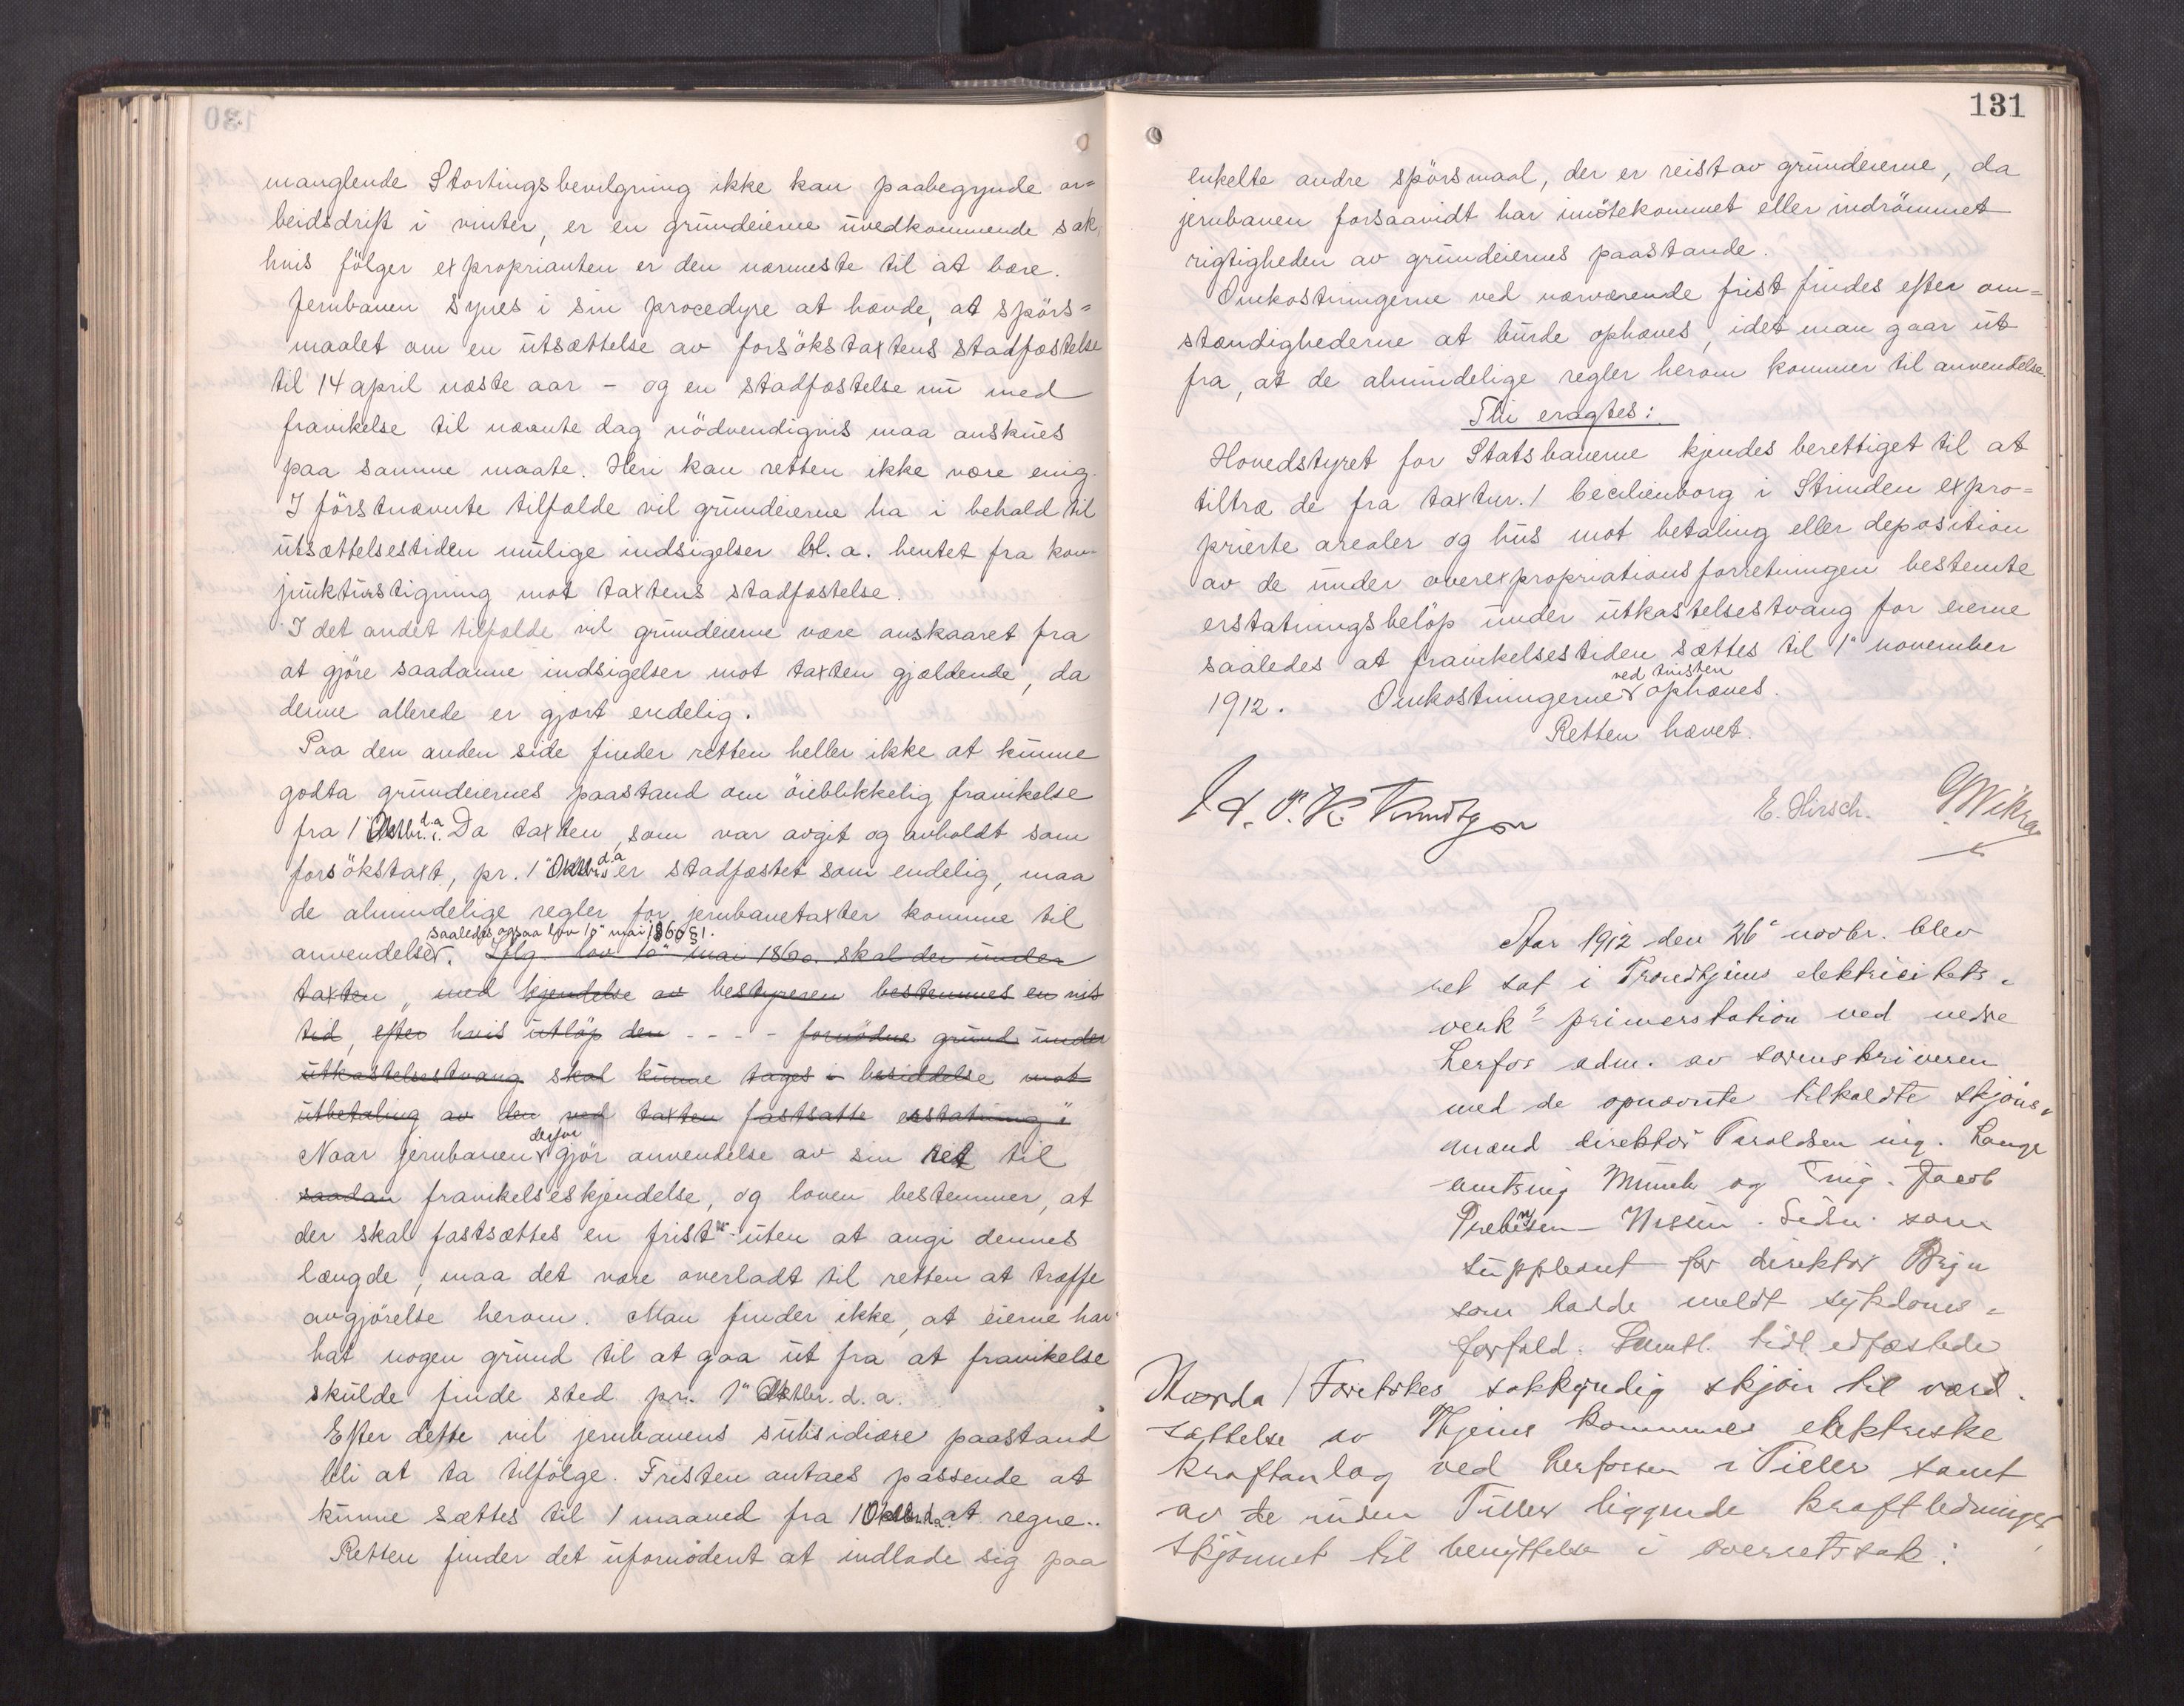 130
manglende Stortingsbevilgning ikke kan paabegynde ar=
beidsdrift i vinter, er en grundeierne uvedkommende sak,
hvis følger exproprianten er den nærmeste til at bære.
Jernbanen synes i sin procedyre at hævde, at spörs=
maalet om en utsættelse av forsökstaxtens stadfæstelse
til 14 april næste aar - og en stadfæstelse nu med
fravikelse til nævnte dag nödvendigvis maa anskues
paa samme maate. Heri kan retten ikke være enig.
I förstnævnte tilfælde vil grundeierne ha i behold til
utsættelsestiden mulige indsigelser bl. a. hentet fra kon-
junkturstigning mot taxtens stadfæstelse.
I det andet tilfælde vil grundeierne være avskaaret fra
at gjöre saadanne indsigelser mot taxten gjældende, da
denne allerede er gjort endelig.
Paa den anden side finder retten heller ikke at kunne
godta grundeiernes paastand om öieblikkelig fravikelse
fra 1 Oktbr. d.a. Da taxten, som var avgit og avholdt som
forsökstaxt, pr. 1 Oktbr. d.a er stadfæstet som endelig, maa
de almindelige regler for jernbanetaxter komme til
saaledes ogsaa lov 10 mai 1860 § 1.
anvendelse. Iflg. lov 10 mai 1860 skal der under
taxten "med kjendelse av bestyreren bestemmes en vis
tid, efter hvis utlöp den - - - - fornödne grund under
utkastelsestvang skal kunne tages i besiddelse mot
utbetaling av den ved taxten fastsatte erstatning"
Naar jernbanen derfor gjör anvendelse av sin ret til
saadan fravikelseskjendelse, og loven bestemmer, at
der skal fastsættes en frist uten at angi dennes
længde, maa det være overladt til retten at træffe
avgjörelse herom. Man finder ikke, at eierne har
hat nogen grund til at gaa ut fra at fravikelse
skulde finde sted pr. 1 Oktbr. d. a.
Efter dette vil jernbanens subsidiære paastand
bli at ta tilfölge. Fristen antaes passende at
kunne sættes til 1 maaned fra 1 Oktbr. d.a. at regne..
Retten finder det ufornödent at indlade sig paa
131
enkelte andre spörsmaal, der er reist av grundeierne, da
jernbanen forsaavidt har imötekommet eller indrömmet
rigtigheden av grundeiernes paastande.
Omkostningerne ved nærværende frist findes efter om=
stændighederne at burde ophæves, idet man gaar ut
fra, at de almindelige regler herom kommer til anvendelse.
Thi eragtes:
Hovedstyret for Statsbanerne kjendes berettiget til at
tiltræ de fra taxtnr. 1 Cecilienborg i Strinden expro=
prierte arealer og hus mot betaling eller deposition
av de under overexpropriationsforretningen bestemte
erstatningsbelöp under utkastelsestvang for eierne
saaledes at fravikelsestiden sættes til 1 november
1912. Omkostningerne ved tvisten ophæves.
Retten hævet.
E. Hirsch.
Aar 1912 den 26 novbr. blev
ret sat i Trondhjems elektricitets-
verk's primærstation ved nedre
Lerfos adm. av sorenskriveren
med de opnævnte tilkaldte skjöns-
mænd direktör Taraldsen ing. Lange
amtsing Munch og ing. Jacob
Nissen som
suppleant for direktör
som hadde meldt sykdoms-
forfald. Samtl. tidl edfæstede
Hvorda / Foretokes sakkyndig skjön til værd-
sættelse av Thjems kommunes elektriske
kraftanlæg ved Lerfossen i Tiller samt
av de uten Tiller liggende kraftledninger
skjönnet til benyttelse i overretssak: